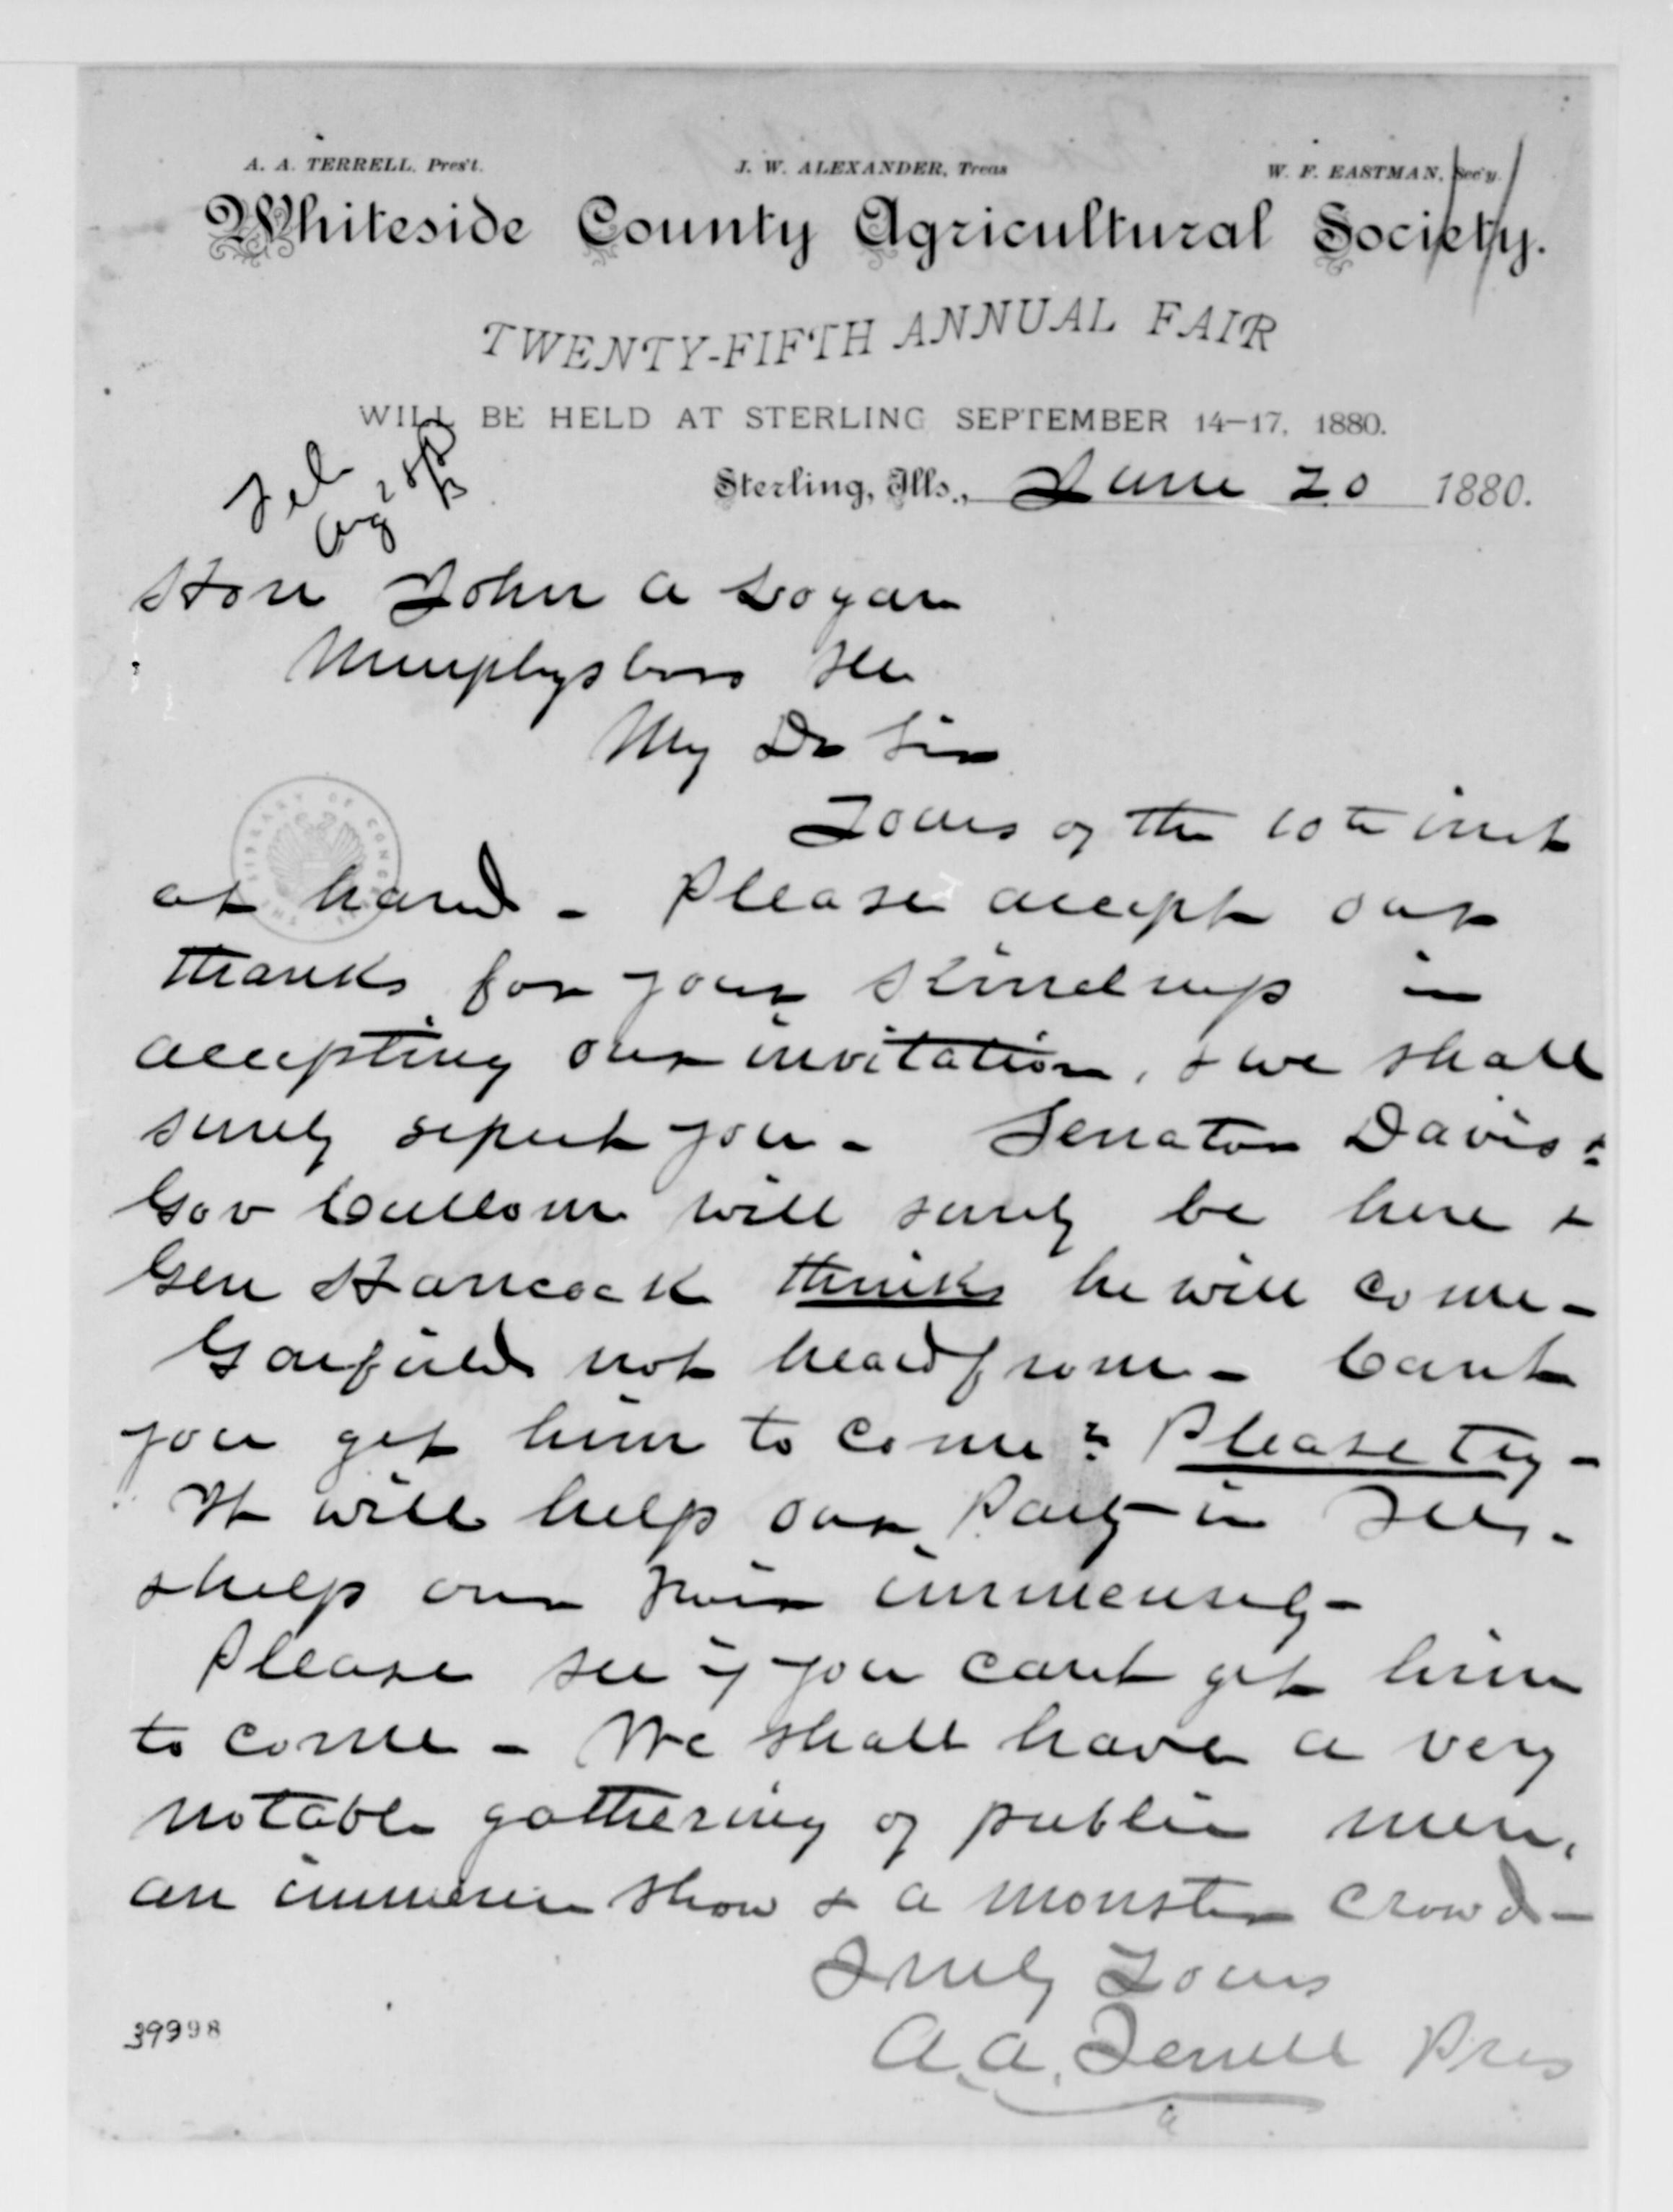 A. A. TERRELL, Pres't. J. W. ALEXANDER, Treas W. F. EASTMAN, Sec'y.
Whiteside County Agricultural Society.
TWENTY-FIFTH ANNUAL FAIR
WILL BE HELD AT STERLING SEPTEMBER 14-17, 1880.
Sterling, Ills., June 20 1880.
Tel
Aug 28
Hon John A Logan
Murphysboro Ills
My Dr Sir
Yours of the 10th inst
at hand - Please accept our
thanks for your kindness in
accepting our invitation, & we shall
surely expect you - Senator Davis &
Gov Cullom will surely be here &
Gen Hancock thinks he will come -
Garfield not heard from - Cant
you get him to come? Please try -
It will help our Party in Ills -
& help our Fair immensely -
Please see if you cant get him
to come - We shall have a very
notable gathering of public men,
an immense show & a monster crowd -
Truly Yours
A. A. Terrell Pres
39998
LIBRARY OF CONGRESS